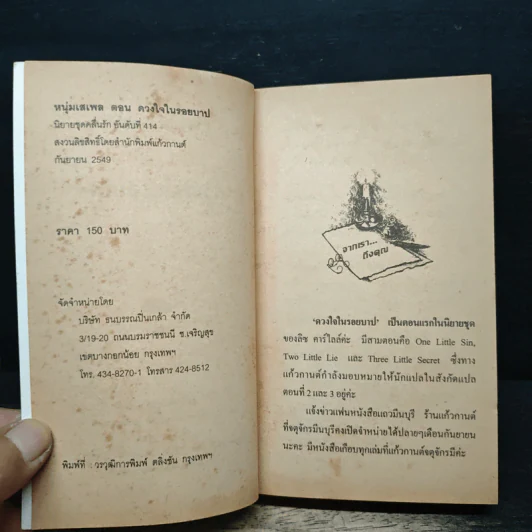 หนุ่มเสเพล ตอน ดวงใจในรอยบาป
นิยายชุดคลื่นรัก อันดับที่ 414
สงวนลิขสิทธิ์โดยสำนักพิมพ์แก้วกานต์
กันยายน 2549
ราคา 150 บาท
จัดจำหน่ายโดย
บริษัท ธนบรรณปิ่นเกล้า จำกัด
3/19-20 ถนนบรมราชชนนี ซ.เจริญสุข
เขตบางกอกน้อย กรุงเทพฯ
โทร. 434-8270-1 โทรสาร 424-8512
พิมพ์ที่ วรวุฒิการพิมพ์ ตลิ่งชัน กรุงเทพฯ
จากเรา...
ถึงคุณ
'ดวงใจในรอยบาป' เป็นตอนแรกในนิยายชุด
ของลิซ คาร์ไลล์ค่ะ มีสามตอนคือ One Little Sin,
Two Little Lie และ Three Little Secret ซึ่งทาง
แก้วกานต์กำลังมอบหมายให้นักแปลในสังกัดแปล
ตอนที่ 2 และ 3 อยู่ค่ะ
แจ้งข่าวแฟนหนังสือแถวมีนบุรี ร้านแก้วกานต์
ที่จตุจักรมีนบุรีคงเปิดจำหน่ายได้ปลายๆเดือนกันยายน
นะคะ มีหนังสือเกือบทุกเล่มที่แก้วกานต์จตุจักรมีค่ะ